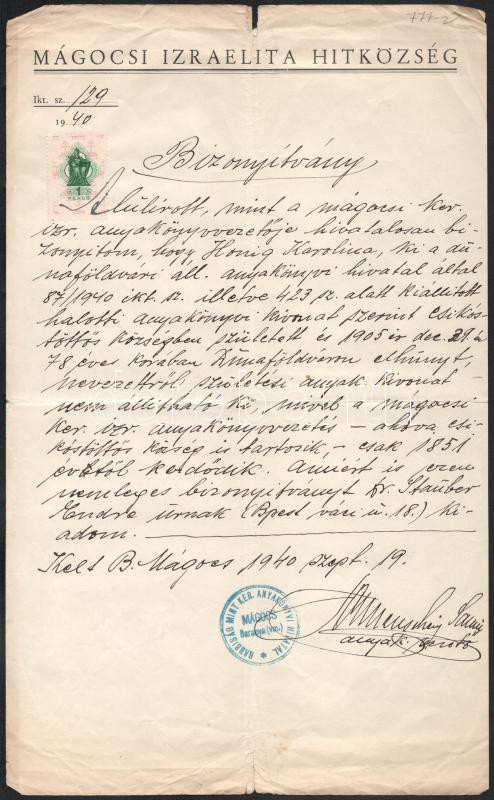 777-2
MÁGOCSI IZRAELITA HITKÖZSÉG
Ikt. sz. 129
1940
1
Bizonyítvány
Alulírott, mint a mágocsi ker.
izr. anyakönyvvezetője hivatalosan bi-
zonyítom, hogy Honig Karolina, ki a du-
naföldvári áll. anyakönyvi hivatal által
87/1940 ikt. sz. illetve 423 sz. alatt kiállított
halotti anyakönyvi kivonat szerint csikós-
töttös községben született és 1905 év dec. 29.én
78 éves korában Dunaföldváron elhúnyt,
nevezettről születési anyak. kivonat –
nem állítható ki, mivel a mágocsi
ker. izr. anyakönyvvezetés – ahova csi-
kóstöttös község is tartozik, – csak 1851
évtől kezdődik. Amiért is ezen
nemleges bizonyítványt Dr. Stauber
Endre úrnak (Bpest váci u. 18.) ki-
adom.
Kelt B. Mágocs 1940 szept. 19.
RABBISÁG MINT KER. ANYAKÖNYVI HIVATAL
MÁGOCS
Baranya (vm.)
anyak.